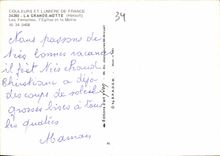 COULEURS ET LUMIERE DE FRANCE
34280 - LA GRANDE-MOTTE (Hérault)
Les Pyramides, l'Eglise et la Mairie
39
Nous passons de
très bonnes vacances
il fait très chaud
Christiane a déjà
des coups de soleil
grosses bises à tous
les quatres
Maman